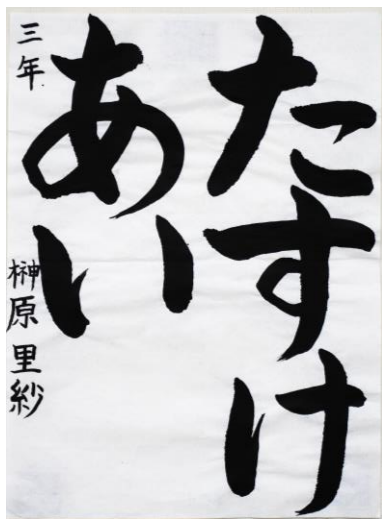 たすけ
あい
三年 榊原里紗